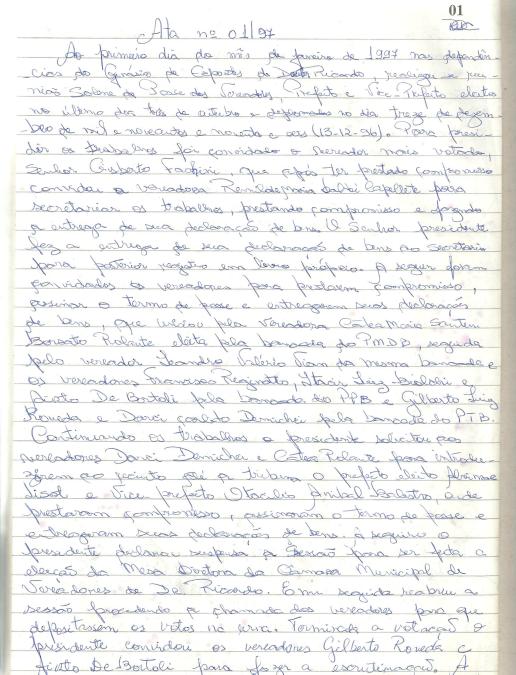 01
Ata nº 01/97
Ao primeiro dia do mês de janeiro de 1997 nas dependên-
cias do Ginásio de Esportes de Doutor Ricardo, realizou-se reu-
nião Solene de Posse dos Vereadores, Prefeito e Vice-Prefeito eleitos
no último dia três de outubro e diplomados no dia treze de dezem-
bro de mil e novecentos e noventa e seis (13-12-96). Para presi-
dir os trabalhos foi convidado o vereador mais votado,
Senhor Gilberto, que após ter prestado compromisso
convidou a vereadora para
secretariar os trabalhos, prestando compromisso e fazendo
a entrega de sua declaração de bens. O Senhor presidente
fez a entrega de sua declaração de bens ao Secretário
para posterior registro em livro próprio. A seguir foram
convidados os vereadores para prestarem compromisso,
assinar o termo de posse e entregarem suas declarações
de bens, que iniciou pela Vereadora Cátea Maria
Rolante eleita pela bancada do PMDB, seguida
pelo vereador Leandro Valério da mesma bancada e
os vereadores Francisco, Itacir Luiz e
Pivato De Bortoli pela bancada do PPB e Gilberto Luiz
Roveda e Darci pela bancada do PTB.
Continuando os trabalhos o presidente solicitou aos
vereadores Darci e Cátea Rolante para introdu-
zirem ao recinto até a tribuna o prefeito eleito
e Vice prefeito Otacilio Anibal, onde
prestaram compromisso, assinaram o termo de posse e
entregaram suas declarações de bens. A seguir o
presidente declarou suspensa a Sessão para ser feita a
eleição da Mesa Diretora da Câmara Municipal de
Vereadores de Dr Ricardo. Em seguida reabriu a
sessão procedendo a chamada dos vereadores para que
depositassem os votos na urna. Terminada a votação o
presidente convidou os vereadores Gilberto Roveda e
Pivato De Bortoli para fazer a escrutinação. A